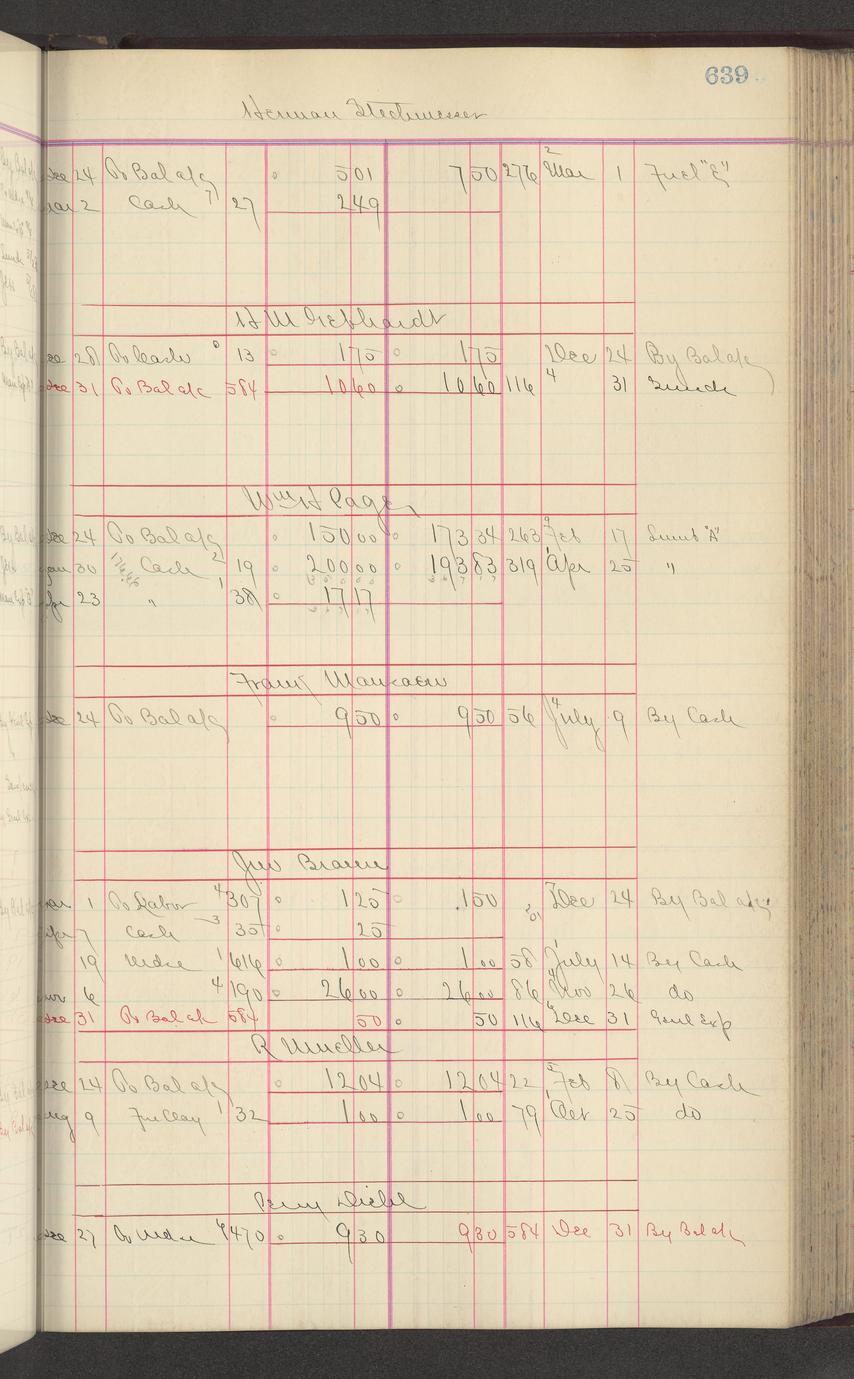 639
Herman Stechmesser
Dec 24 To Bal a/c 501 750 276 2 Mar 1 Fuel "E"
Mar 2 Cash 7 27 249
H M Gebhardt
Dec 28 To Cash 0 13 175 175 Dec 24 By Bal a/c
Dec 31 To Bal a/c 584 1060 1060 116 4 31 Sunds
Wm H Page
Dec 24 To Bal a/c 150 00 173 34 263 9 Feb 17 Lumb "A"
Jan 30 Cash 2 19 200 00 193 83 319 Apr 25 "
Apr 23 " 1 38 17 17
Dec 24 To Bal a/c 9 50 9 50 56 4 July 9 By Cash
Jno Braun
1 To Labor 4 307 1 25 1 50 Dec 24 By Bal a/c
Apr 7 Cash 3 35 25
19 Mdse 1 616 1 00 1 00 58 1 July 14 By Cash
Nov 6 4 190 26 00 26 00 86 4 Nov 26 do
Dec 31 To Bal a/c 584 50 50 116 Dec 31 Genl Exp
R Mueller
Dec 24 To Bal a/c 12 04 12 04 22 5 Feb 8 By Cash
Aug 9 Fire Clay 1 32 1 00 1 00 79 1 Oct 25 do
Perry Diehl
Dec 27 To Mdse 4 470 9 30 9 30 584 Dec 31 By Bal a/c